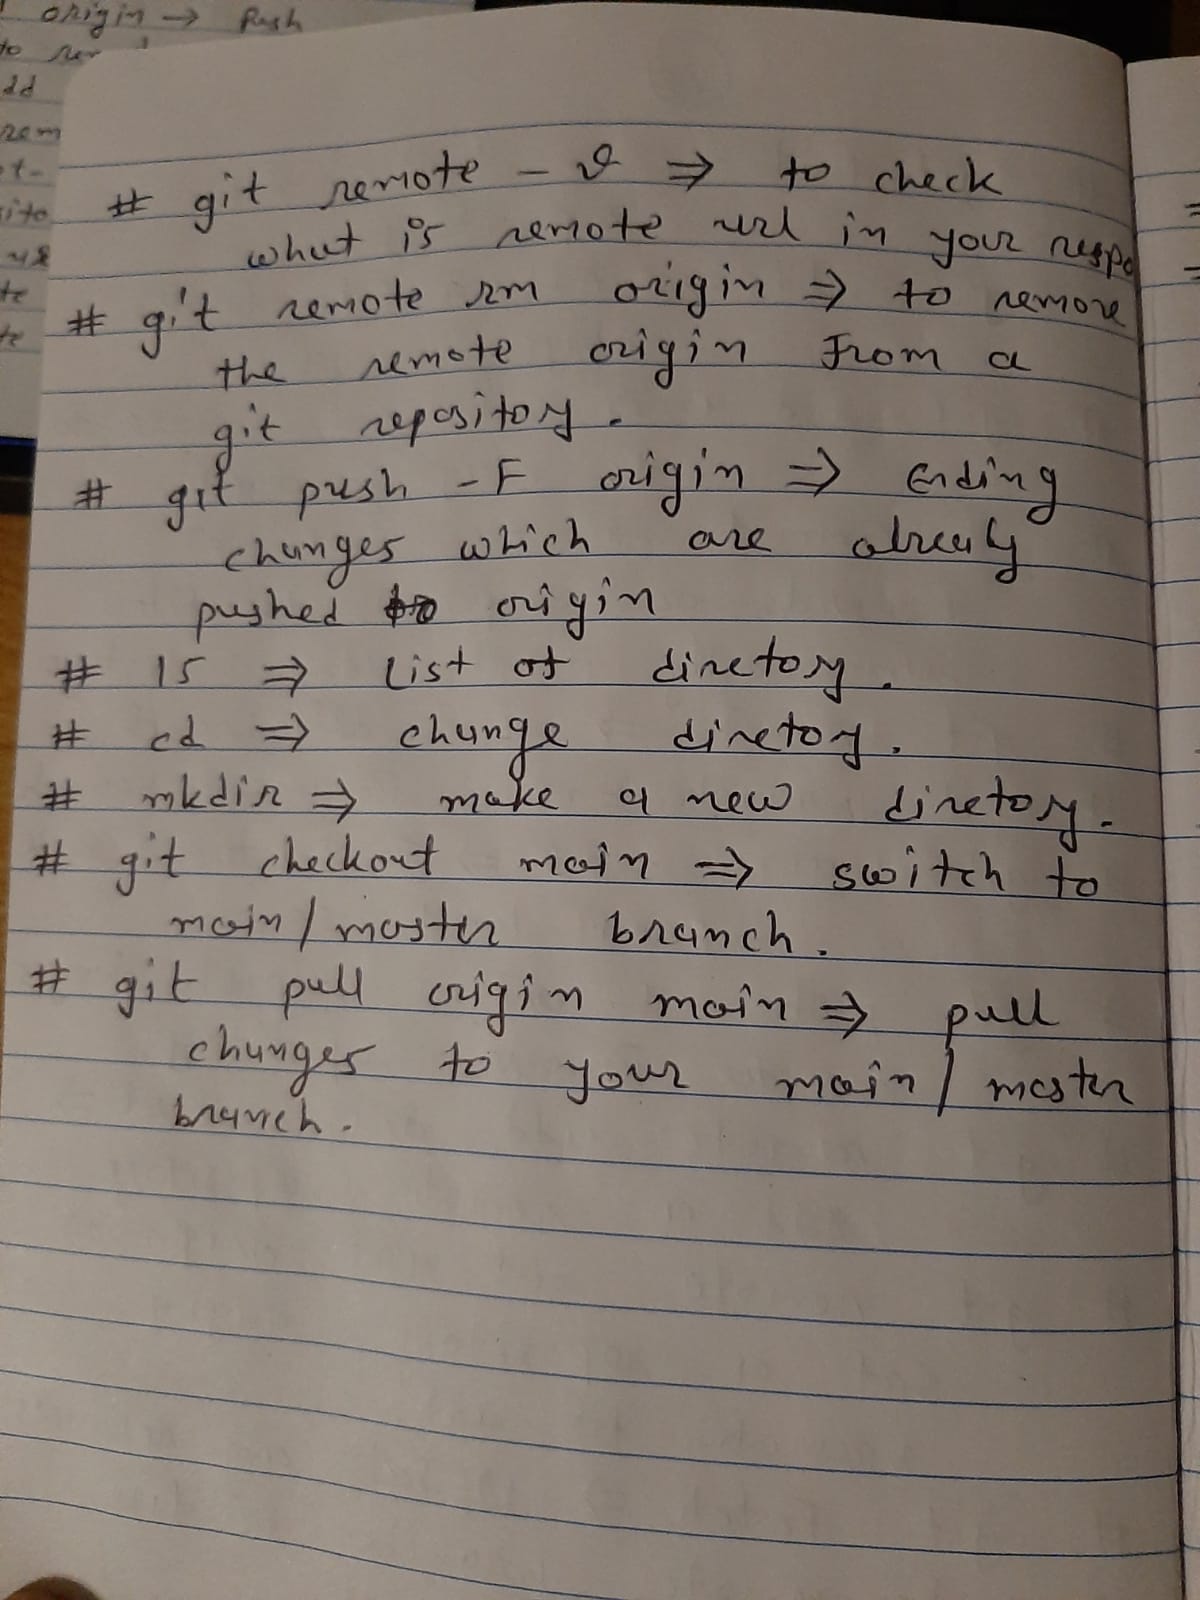 origin → Push
to
dd
rem
# git remote -v ⇒ to check
what is remote url in your respo
# git remote rm origin ⇒ to remove
the remote origin From a
git repository.
# git push -F origin ⇒ Ending
changes which are already
pushed to origin
# ls ⇒ List of diretory.
# cd ⇒ change diretory.
# mkdir ⇒ make a new diretory.
# git checkout main ⇒ switch to
main/master branch.
# git pull origin main ⇒ pull
changes to your main/master
branch.